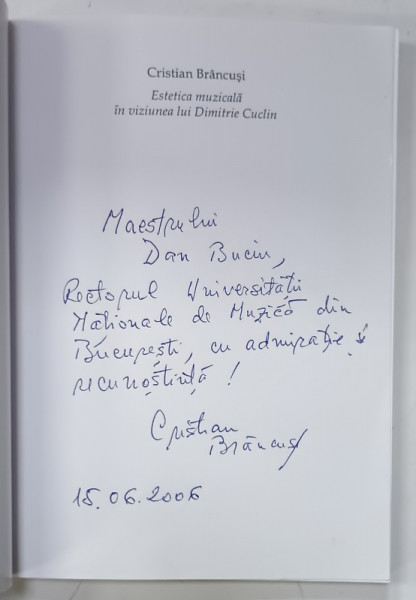 Cristian Brâncuși
Estetica muzicală
în viziunea lui Dimitrie Cuclin
Maestrului
Dan Buciu,
Rectorul Universității
Naționale de Muzică din
București, cu admirație și
recunoștință !
Cristian
Brâncuși
15.06.2006